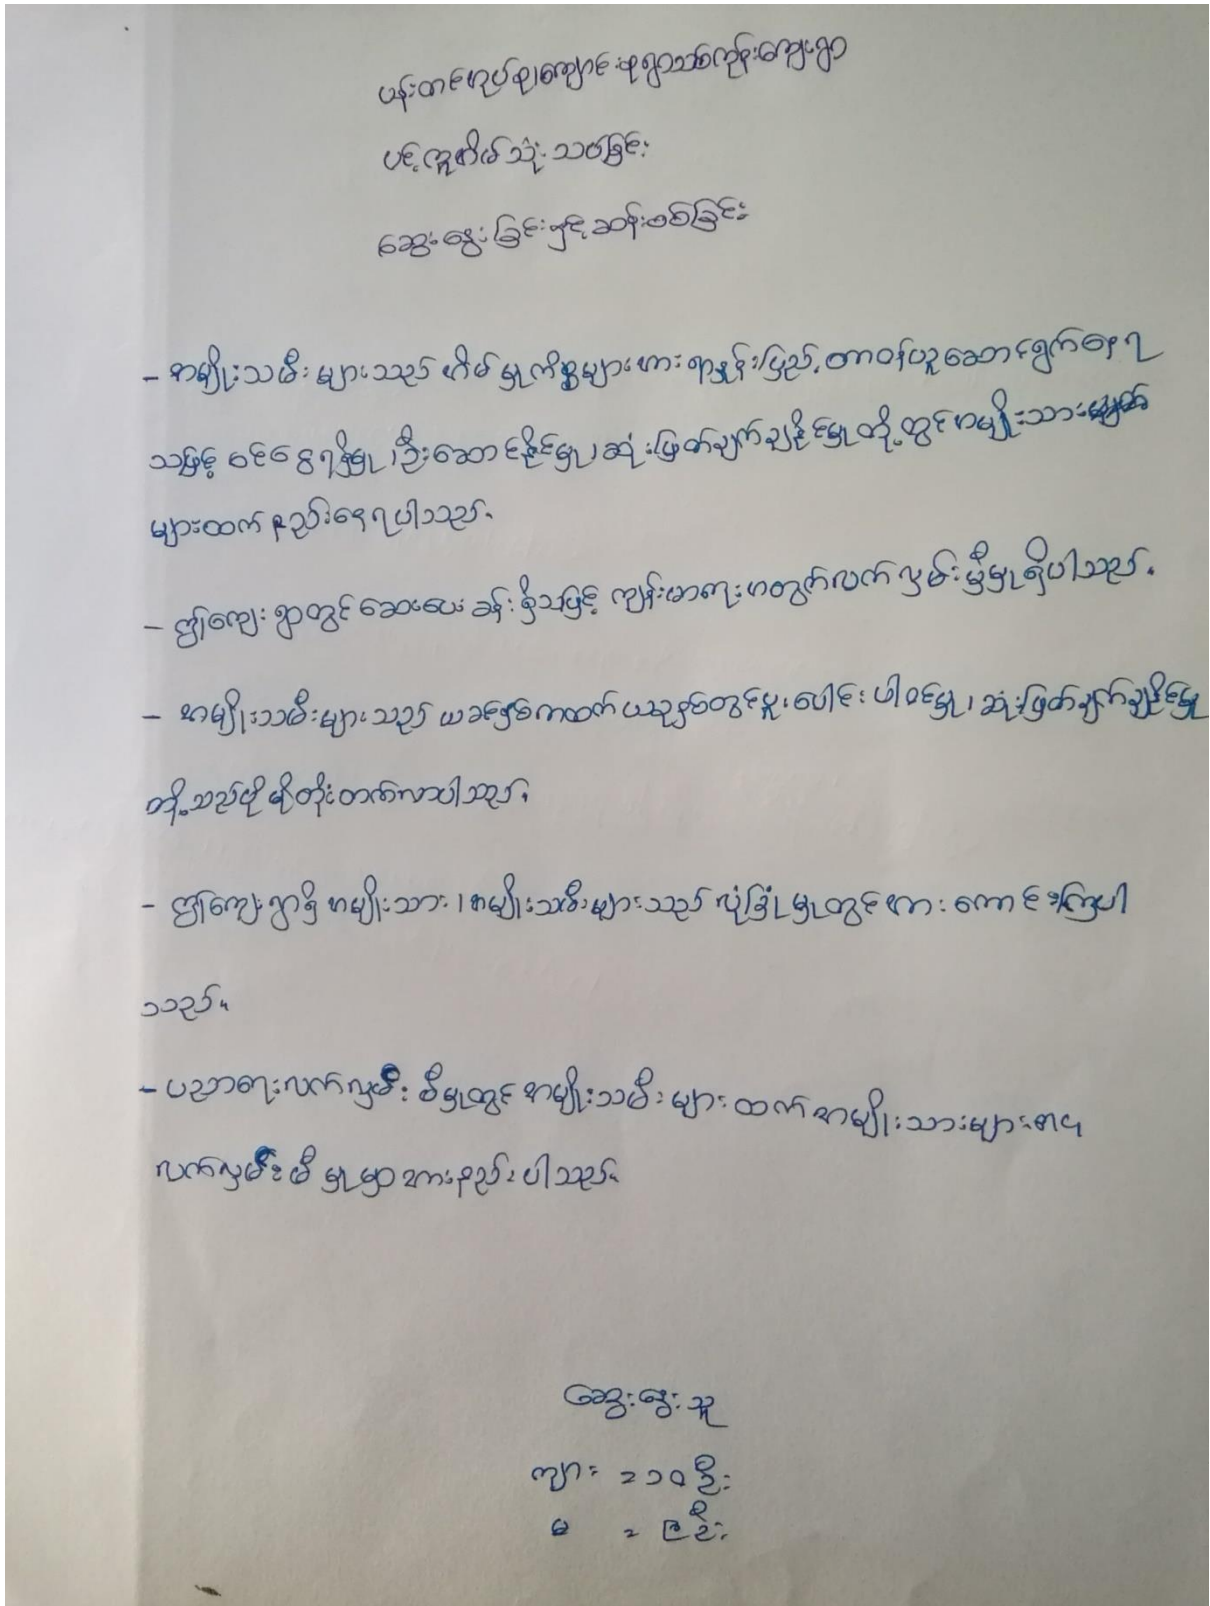 ပန်းတင်အုပ်စု၊ကျောင်းစုရွာသစ်ကုန်းကျေးရွာ
ပင့်ကူအိမ်သုံးသပ်ခြင်း
ဆွေးနွေးခြင်းနှင့်ဆန်းစစ်ခြင်း
- အမျိုးသမီးများသည် အိမ်မှုကိစ္စများအားရာနှုန်းပြည့်တာဝန်ယူဆောင်ရွက်နေရ
သဖြင့် ဝင်ငွေရရှိမှု၊ဦးဆောင်နိုင်မှု၊ဆုံးဖြတ်ချက်ချနိုင်မှုတို့တွင်အမျိုးသား
များထက်နည်းနေရပါသည်။
- ဤကျေးရွာတွင်ဆေးပေးခန်းရှိသဖြင့် ကျန်းမာရေးအတွက်လက်လှမ်းမှီမှုရှိပါသည်။
- အမျိုးသမီးများသည် ယခင်နှစ်ကထက်ယခုနှစ်တွင်ပူးပေါင်းပါဝင်မှု၊ ဆုံးဖြတ်ချက်ချနိုင်မှု
တို့သည်ပိုမိုတိုးတက်လာပါသည်။
- ဤကျေးရွာရှိ အမျိုးသား၊အမျိုးသမီးများသည် လုံခြုံမှုတွင်အားကောင်းကြပါ
သည်။
- ပညာရေးလက်လှမ်းမီမှုတွင် အမျိုးသမီးများထက် အမျိုးသားများ၏
လက်လှမ်းမီမှုမှာအားနည်းပါသည်။
ဆွေးနွေးသူ
ကျား = ၁၀ ဦး
မ = ၉ဦး